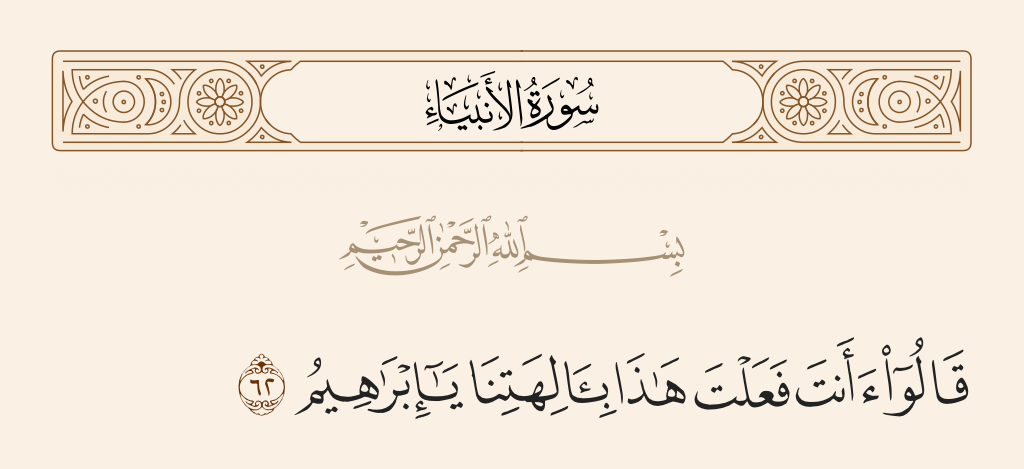 سُورَةُ الأَنبِيَاءِ
بِسْمِ ٱللَّهِ ٱلرَّحْمَٰنِ ٱلرَّحِيمِ
قَالُوٓا۟ ءَأَنتَ فَعَلْتَ هَٰذَا بِـَٔالِهَتِنَا يَـٰٓإِبْرَٰهِيمُ ٦٢